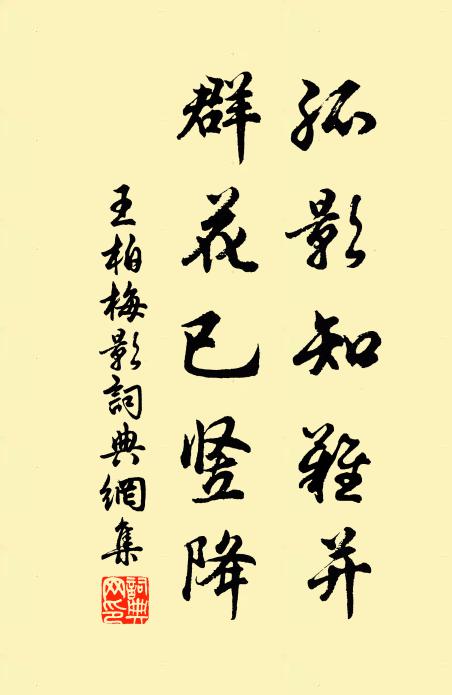 孤影知難并
群花已竖降
王柏梅影詞典網集
詞典網印